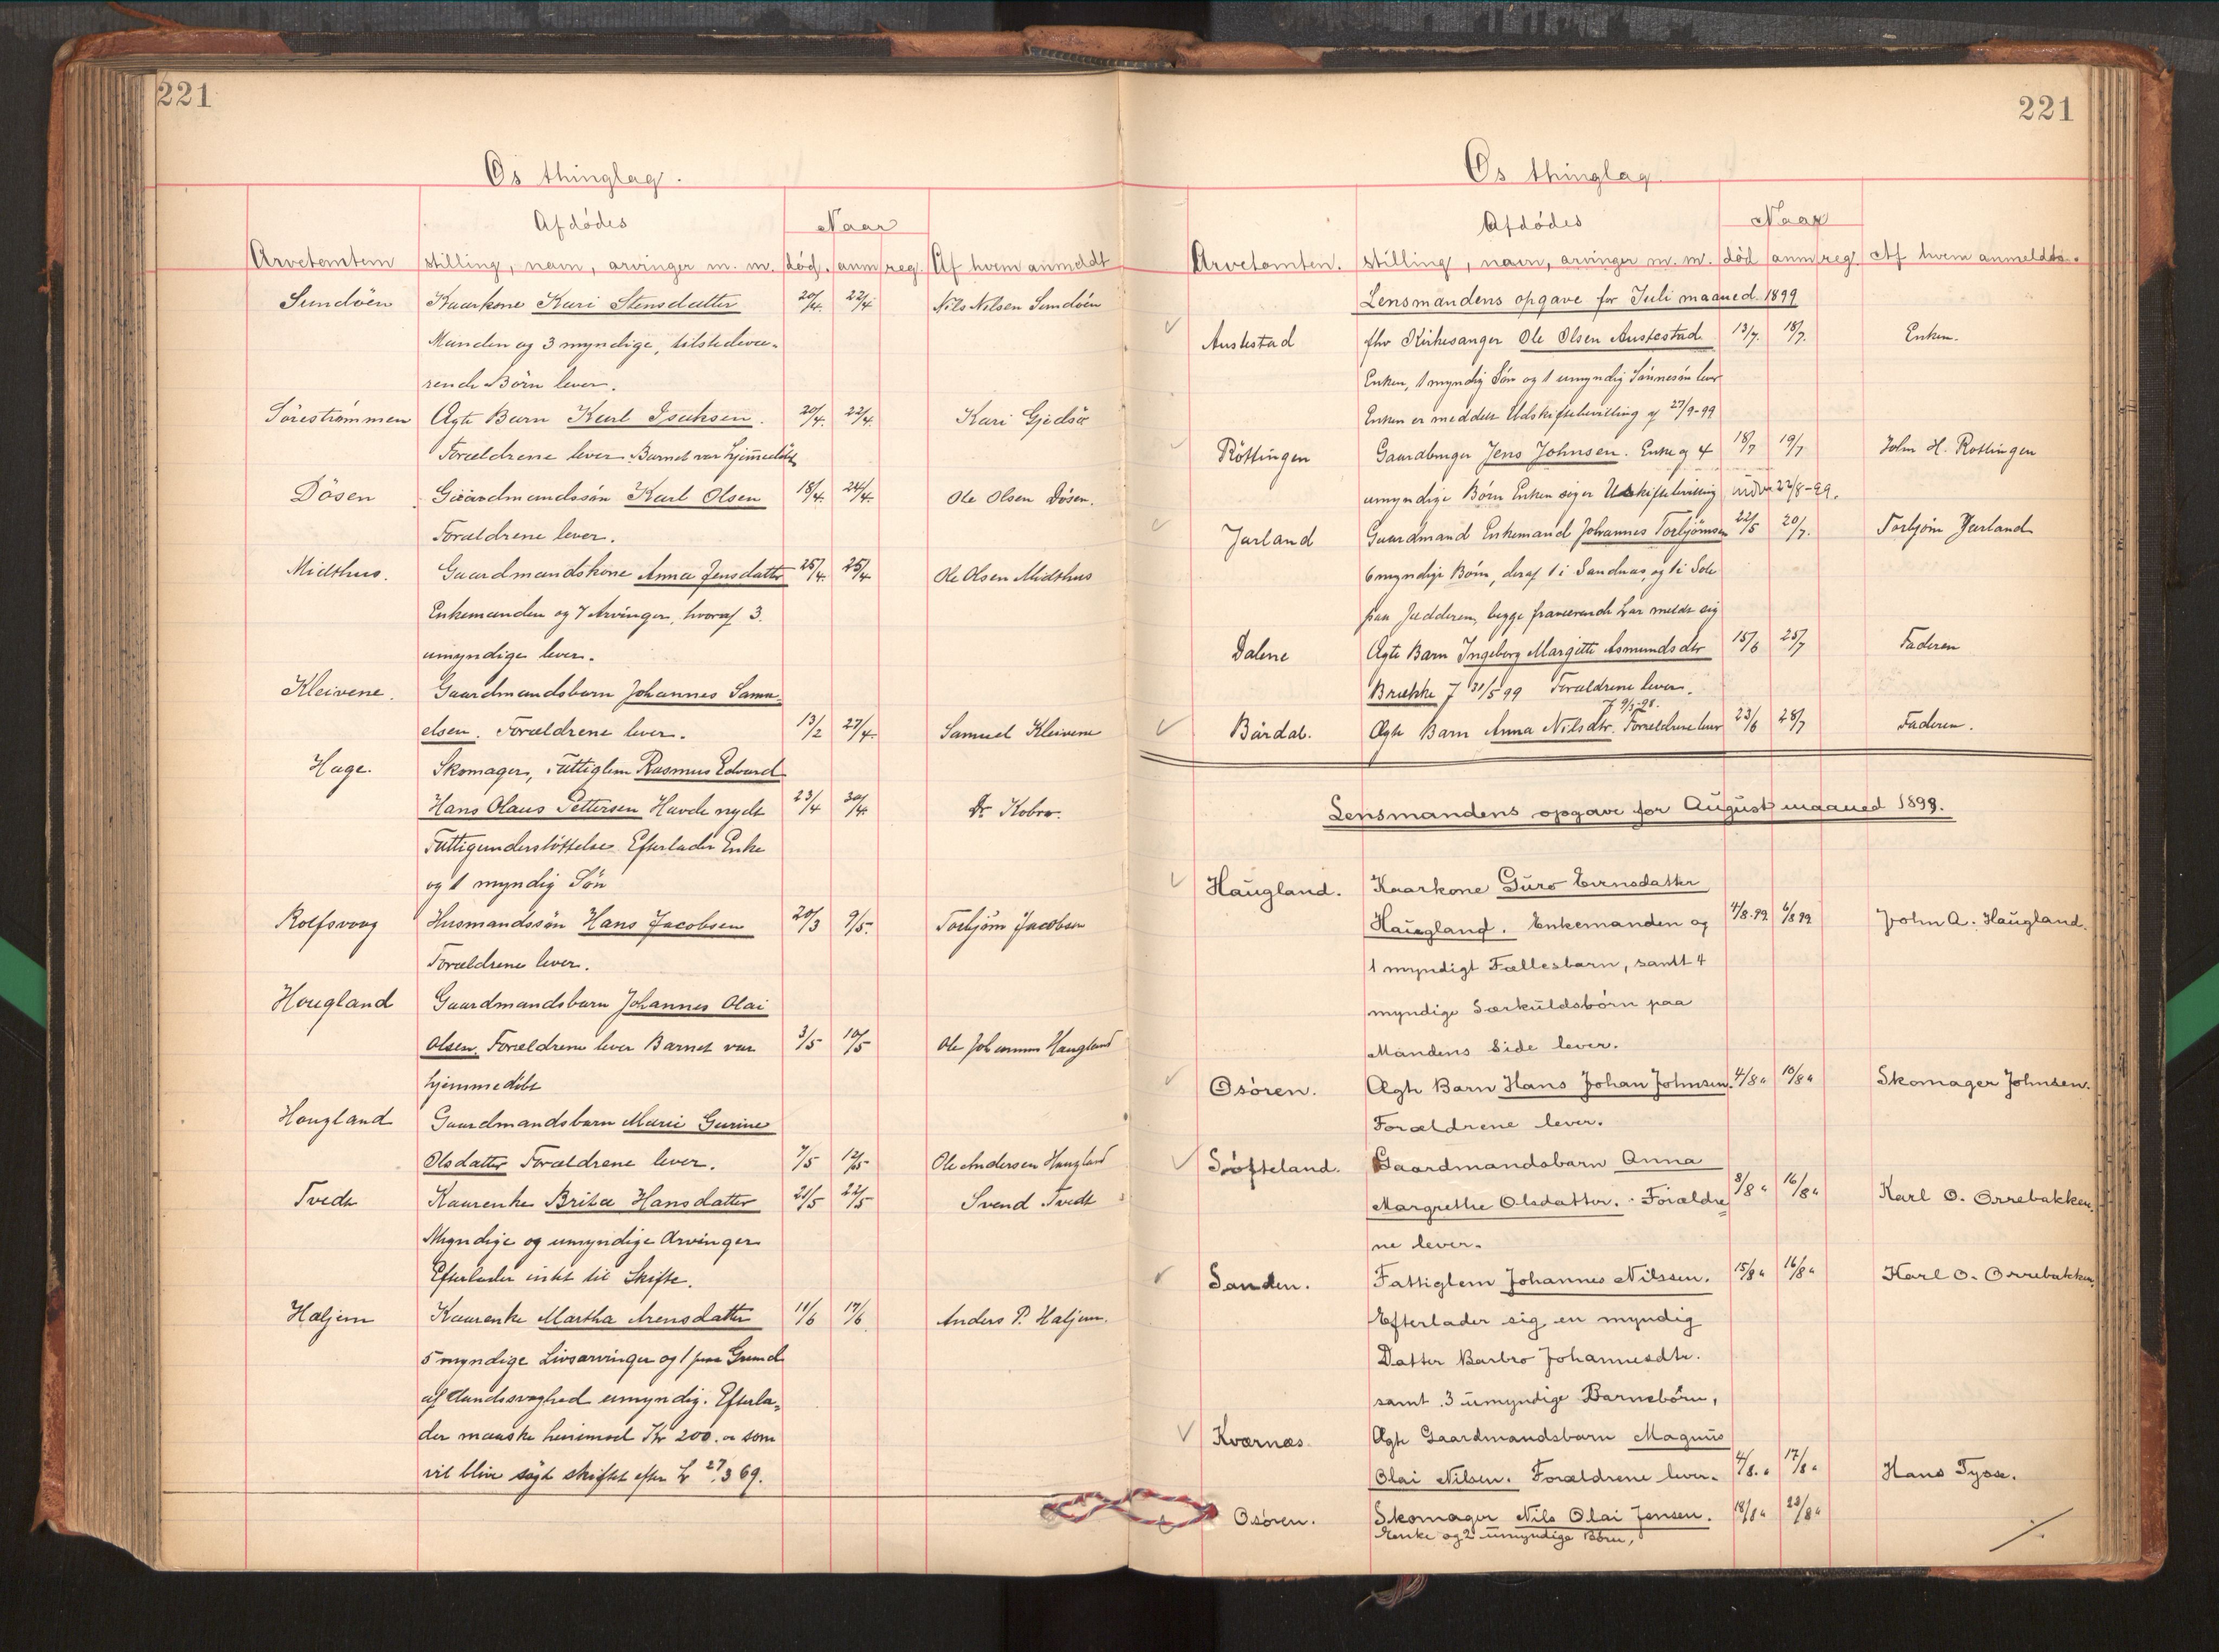 221
Os thinglag.
Afdödes
Naar
Arvetomten stilling, navn, arvinger m. m. död. anm reg. Af hvem anmeldt
Sundöen Kaarkone Kari Stensdatter 20/4. 22/4 Nils Nilsen Sundöen
Manden og 3 myndige, tilstedevæ-
rende Börn lever.
Sörestrømmen Ægte Barn Karl Isaksen. 20/4. 22/4. Kari Gjedsö
Forældrene lever. Barnet var hjemmedöbt
Dösen Gaardmandssön Karl Olsen 18/4. 24/4. Ole Olsen Dösen.
Forældrene lever.
Midthus. Gaardmandskone Anna Jensdatter 25/4. 25/4. Ole Olsen Midthus
Enkemanden og 7 Arvinger, hvoraf 3.
umyndige lever.
Kleivene. Gaardmandsbarn Johannes Samu-
elsen. Forældrene lever. 13/2 27/4. Samuel Kleivene
Hage. Skomager, Fattiglem Rasmus Edvard
Hans Olaus Pettersen Havde nydt 23/4 30/4. Dr Kobro.
Fattigunderstöttelse Efterlader Enke
og 1 myndig Sön
Rolfsvaag Husmandssön Hans Jacobsen 20/3 9/5. Torbjörn Jacobsen
Forældrene lever.
Hougland Gaardmandsbarn Johannes Olai
Olsen. Forældrene lever Barnet var 3/5 10/5 Ole Johannes Haugland
hjemmedöbt
Hougland Gaardmandsbarn Marie Gurine
Olsdatter Forældrene lever. 7/5 12/5 Ole Andersen Haugland
Tvedt Kaarenke Brita Hansdatter 21/5 22/5 Svend Tvedt
Myndige og umyndige Arvinger
Efterlader intet til Skifte.
Haljem Kaarenke Martha Arensdatter 11/6 17/6 Anders P. Haljem.
5 myndige Livsarvinger og 1 paa Grund
af Aandssvaghed umyndig. Efterla-
der maaske henimod Kr 200. som
vil blive søgt skiftet efter L 27.3 69.
221
Os thinglag.
Afdödes
Naar
Arvetomten. stilling, navn, arvinger m. m. död anm reg. Af hvem anmeldt.
Lensmandens opgave for Juli maaned 1899
Austestad fhv Kirkesanger Ole Olsen Austestad 13/7. 18/7. Enken.
Enken, 1 myndig Sön og 1 umyndig Sönnesön lever
Enken er meddelt Udskiftebevilling af 27/9-99
Röttingen Gaardbruger Jens Johnsen. Enke og 4 18/7 19/7 John H. Rottingen
umyndige Börn Enken siger Uskiftebevilling 22/8-99.
Jarland Gaardmand Enkemand Johannes Torbjörnsen 22/5 20/7. Torbjörn Jarland
6 myndige Börn, deraf 1 i Sandnæs, og 1 i Sole
paa Jædderen, begge fraværende har meldt sig
Dalene Ægte Barn Ingeborg Margitte Asmundsdtr 15/6 25/7 Faderen
Brække f 31/5 99 Forældrene lever.
f 9/3-98.
Bårdal. Ægte Barn Anna Nilsdtr. Forældrene lever 23/6 28/7 Faderen.
Lensmandens opgave for August maaned 1899.
Haugland. Kaarkone Guro Evensdatter
Haugland. Enkemanden og 4/8.99 6/8 99 John A. Haugland.
1 myndigt Fællesbarn, samt 4
myndige Særkuldsbörn paa
Mandens Side lever.
Osören. Ægte Barn Hans Johan Johnsen. 4/8 " 10/8 " Skomager Johnsen.
Forældrene lever.
Söfteland. Gaardmandsbarn Anna
Margrethe Olsdatter. Forældre 8/8 " 16/8 " Karl O. Orrebakken.
ne lever.
Sanden. Fattiglem Johannes Nilssen. 15/8 " 16/8 " Karl O. Orrebakken.
Efterlader sig en myndig
Datter Barbro Johannesdtr.
samt 3 umyndige Barnebörn,
Kvernæs. Ægte Gaardmandsbarn Magnus
Olai Nilsen. Forældrene lever. 4/8. " 17/8 " Hans Tysse.
Osören. Skomager Nils Olai Jensen. 18/8 " 23/8 "
Enke og 2 umyndige Börn,